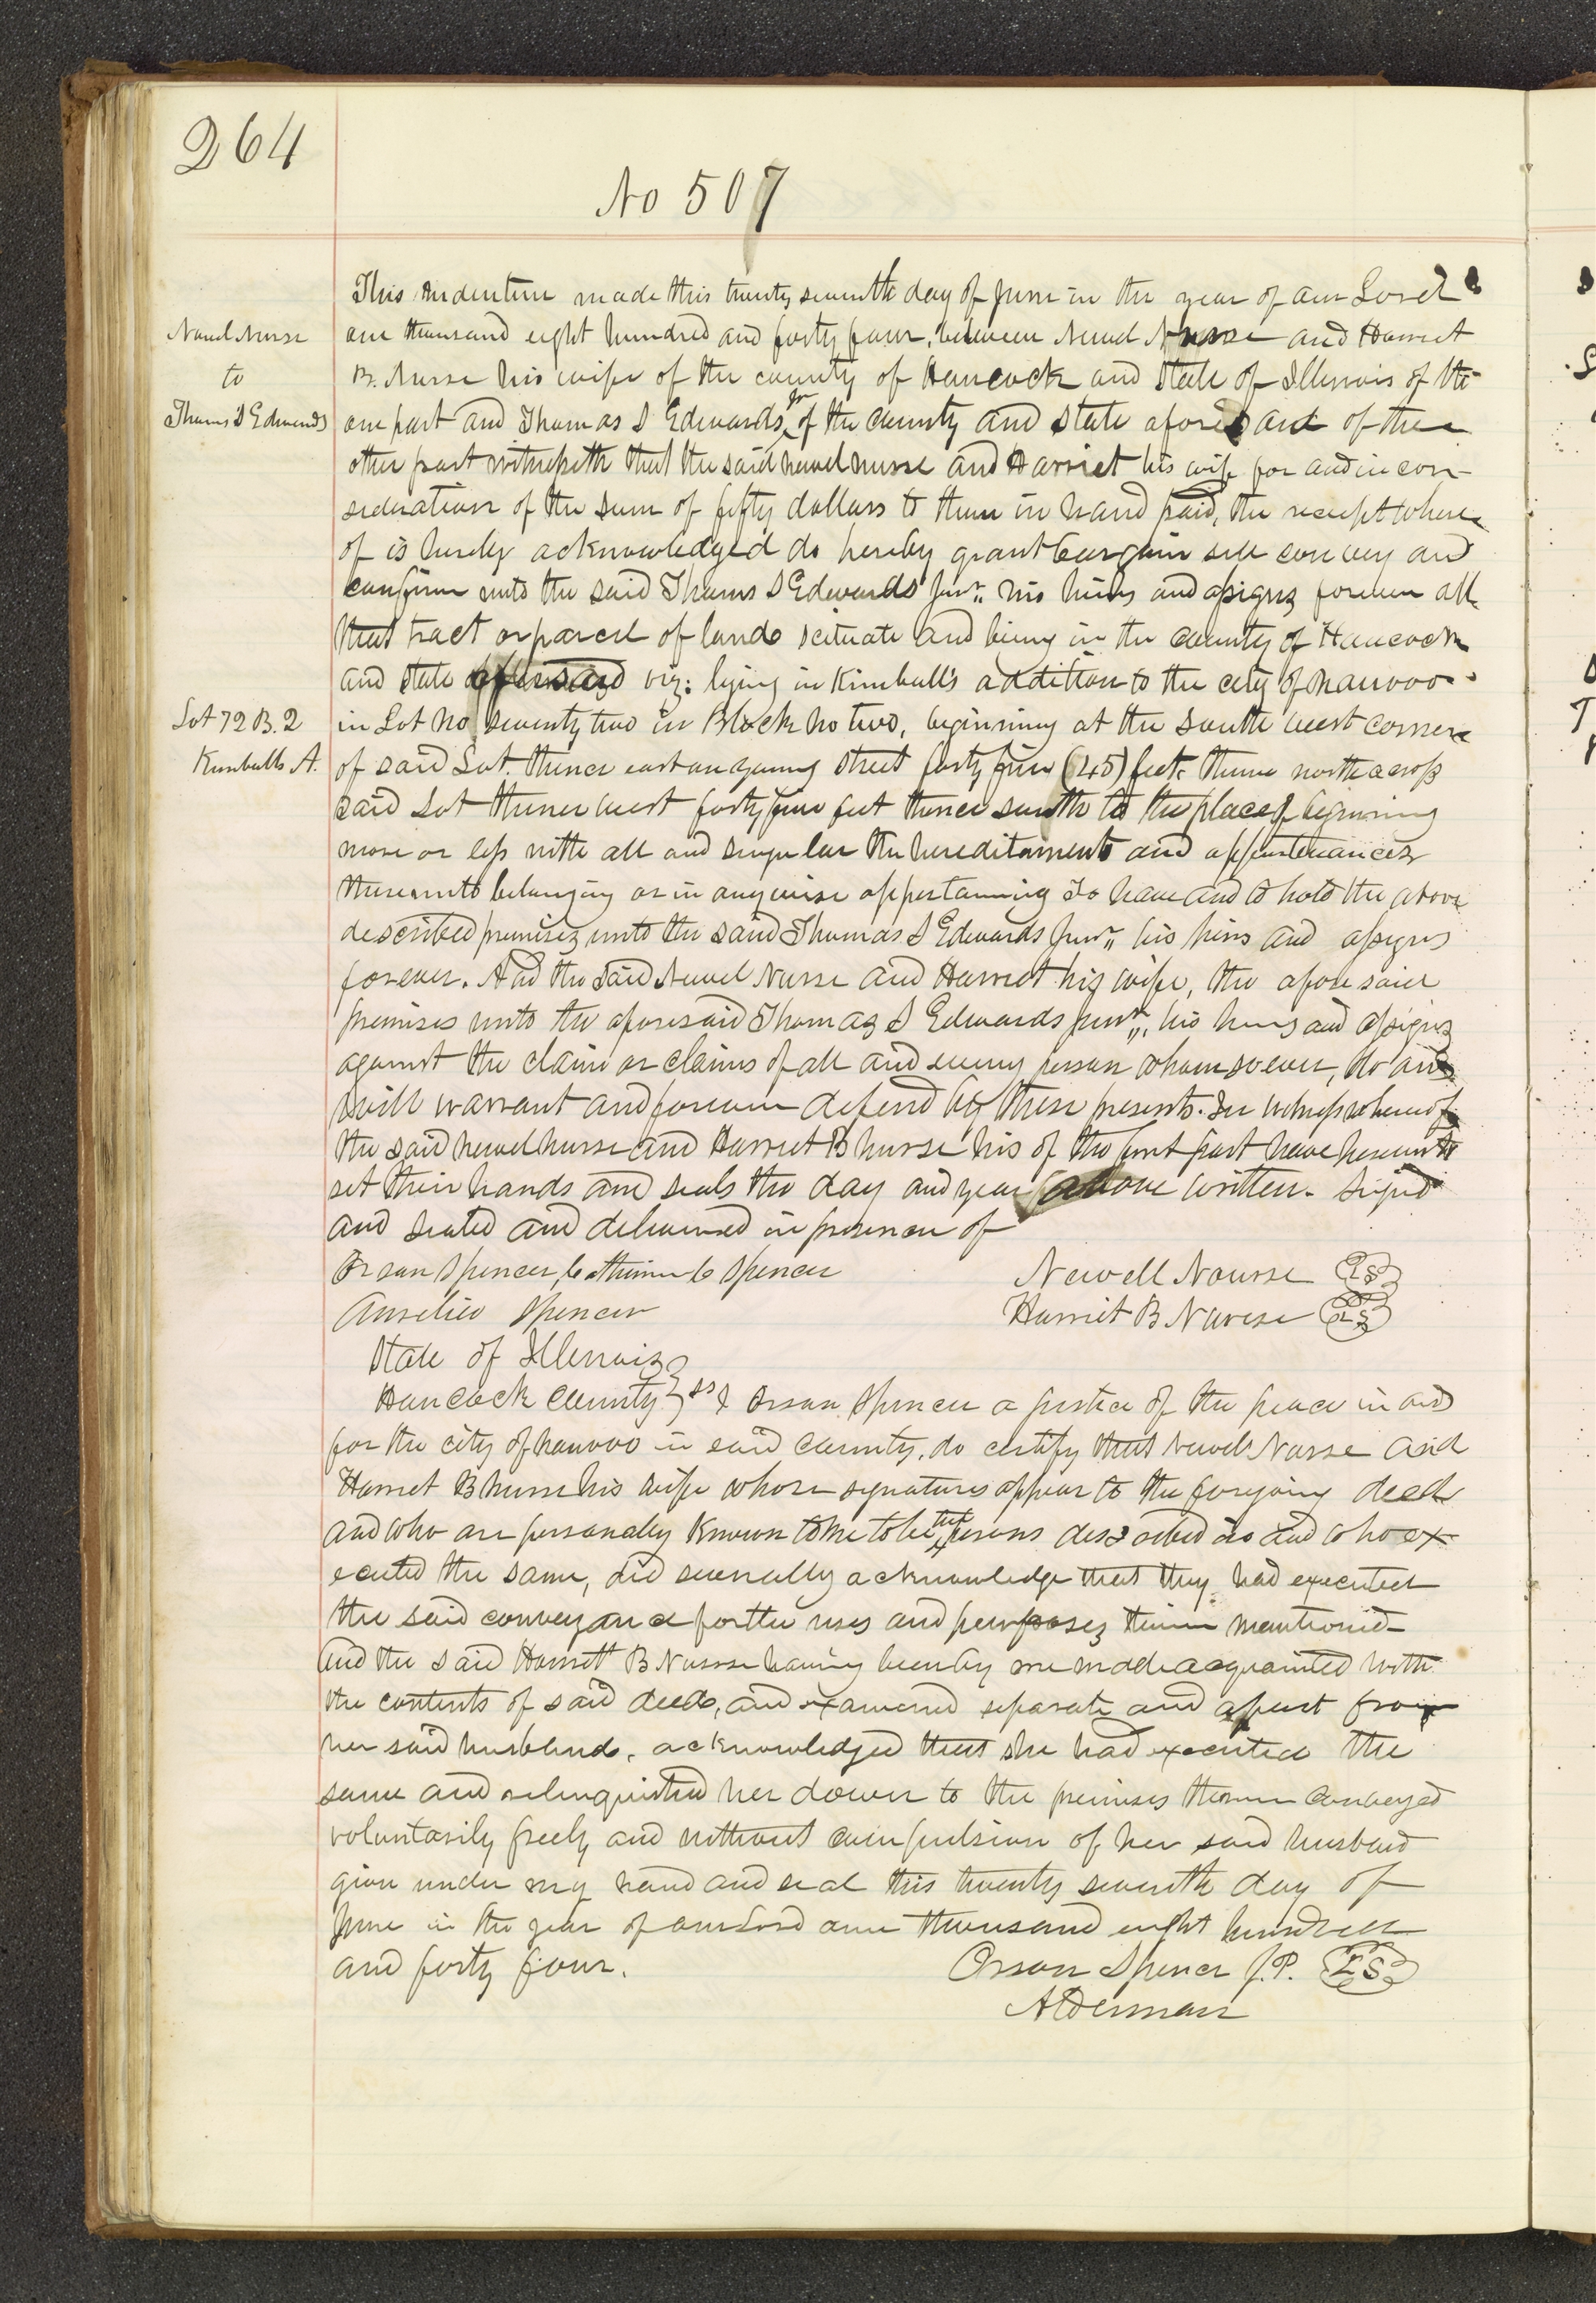 264
No 507
This Indenture made this twenty seventh day of June in the year of our Lord
Newel Nurse
one thousand eight hundred and forty four, between Newel Nurse and Harriet
to
B. Nurse his wife of the county of Hancock and State of Illinois of the
Thomas S Edwards
one part and Thomas S Edwards Jr of the County and State aforesaid of the
other part witnesseth that the said newel nurse and Harriet his wife for and in con-
sideration of the sum of fifty dollars to them in hand paid, the receipt where
of is hereby acknowledged do hereby grant bargain sell convey and
confirm unto the said Thomas S Edwards Junr. his heirs and assigns forever all
that tract or parcel of land scituate and being in the county of Hancock
and state aforesaid viz: lying in Kimball's addition to the city of nauvoo
Lot 72 B. 2
in Lot No seventy two in Block No two, beginning at the south west corner
Kimballs A.
of said Lot. thence east on young street forty five (45) feet. thence north across
said Lot thence west forty five feet thence south to the place of begining
more or less with all and singular the hereditaments and appurtenances
thereunto belonging or in anywise appertaining To have and to hold the above
described premises unto the said Thomas S Edwards Junr. his heirs and assigns
forever. And the said Newel Nurse and Harriet his wife, the aforesaid
premises unto the aforesaid Thomas S Edwards junr., his heirs and assigns
against the claim or claims of all and every person whomsoever, do and
will warrant and forever defend by these presents. In witness whereof
the said newel nurse and Harriet B nurse his of the first part have hereunto
set their hands and seals the day and year above written. Signed
and sealed and delivered in presence of
Orson Spencer, Catharine C Spencer
Newell Nourse LS
Aurelia Spencer
Harriet B Nurse LS
State of Illinois
Hancock County ss I Orson Spencer a justice of the peace in and
for the city of nauvoo in said County, do certify that Newel Nurse and
Harriet B nurse his wife whose signatures appear to the foregoing deed
and who are personally known to me to be the persons described in and who ex-
ecuted the same, did severally acknowledge that they had executed
the said conveyance for the uses and purposes therein mentioned
and the said Harriet B Nurse having been by me made acquainted with
the contents of said deed, and examened separate and apart from
her said husband, acknowledged that she had executed the
same and relinquished her dower to the premises therein conveyed
voluntarily freely and without compulsion of her said husband
given under my hand and seal this twenty seventh day of
June in the year of our Lord one thousand eight hundred
and forty four.
Orson Spencer J.P. LS
Alderman